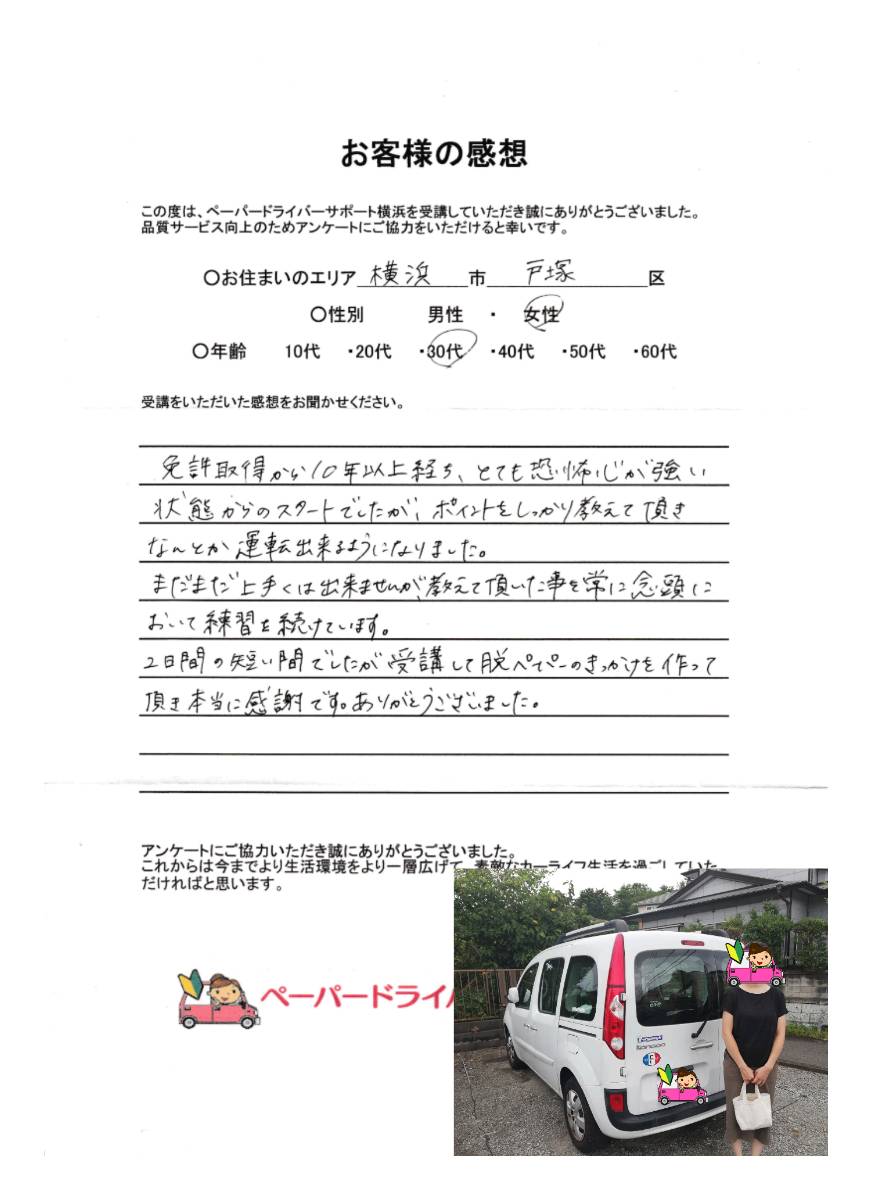 お客様の感想
この度は、ペーパードライバーサポート横浜を受講していただき誠にありがとうございました。
品質サービス向上のためアンケートにご協力をいただけると幸いです。
〇お住まいのエリア 横浜 市 戸塚 区
〇性別 男性 ・ 女性
〇年齢 10代 ・20代 ・30代 ・40代 ・50代 ・60代
受講をいただいた感想をお聞かせください。
免許取得から10年以上経ち、とても恐怖心が強い
状態からのスタートでしたが、ポイントをしっかり教えて頂き
なんとか運転出来るようになりました。
まだまだ上手くは出来ませんが、教えて頂いた事を常に念頭に
おいて練習を続けています。
2日間の短い間でしたが受講して脱ペーパーのきっかけを作って
頂き本当に感謝です。ありがとうございました。
アンケートにご協力いただき誠にありがとうございました。
これからは今までより生活環境をより一層広げて、素敵なカーライフ生活を過ごしていた
だければと思います。
ペーパードライ
kangoo